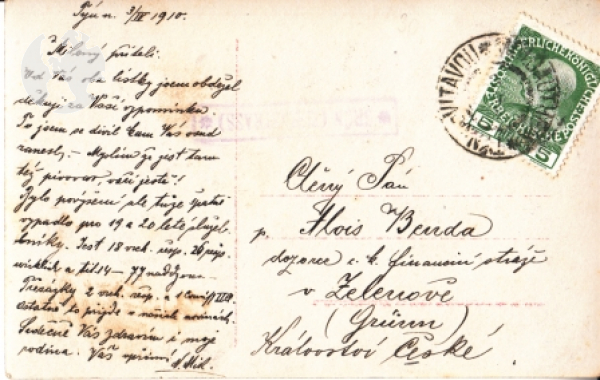 Týn n. 3/IV 1910.
Milený příteli.
Od Vás oba lístky jsem obdržel
děkuji za Vaši vzpomínku
To jsem se divil kam Vás osud
zanesl. – Myslím že jest tam
též pivovar, vaří ještě!
Bylo povýšení ale tuze špatně
vypadlo pro 19 a 20 leté služeb
Jest 18 26
a tit 14 – 77
2 a 1
ostatně to přijde v našich novinách.
Srdečně Vás zdravím i moji
rodina. Váš upřímný
VLTAVOU
KAISERLICHE KÖNIGLICHE
ÖSTERREICHISCHE POST
5 5
Ctěný Pán
p. Alois Benda
dozorce c. k. finanční stráže
v Zelenově
(Grünn)
Království České